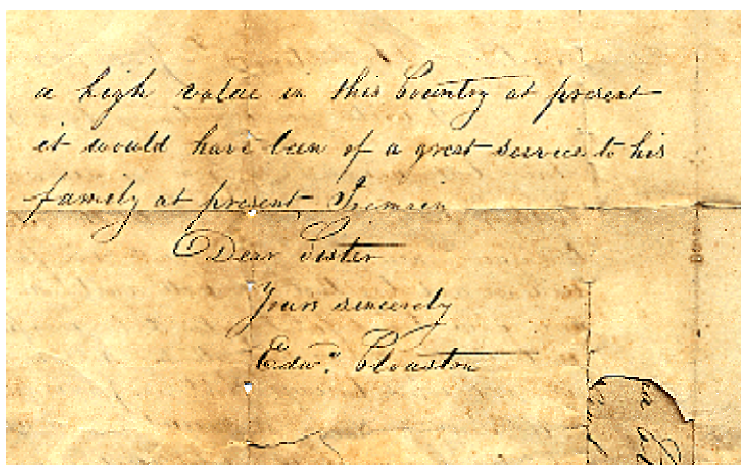 a high value in this Country at present
it would have been of a great service to his
family at present I remain
Dear Sister
Yours sincerely
Edwd. Clouston